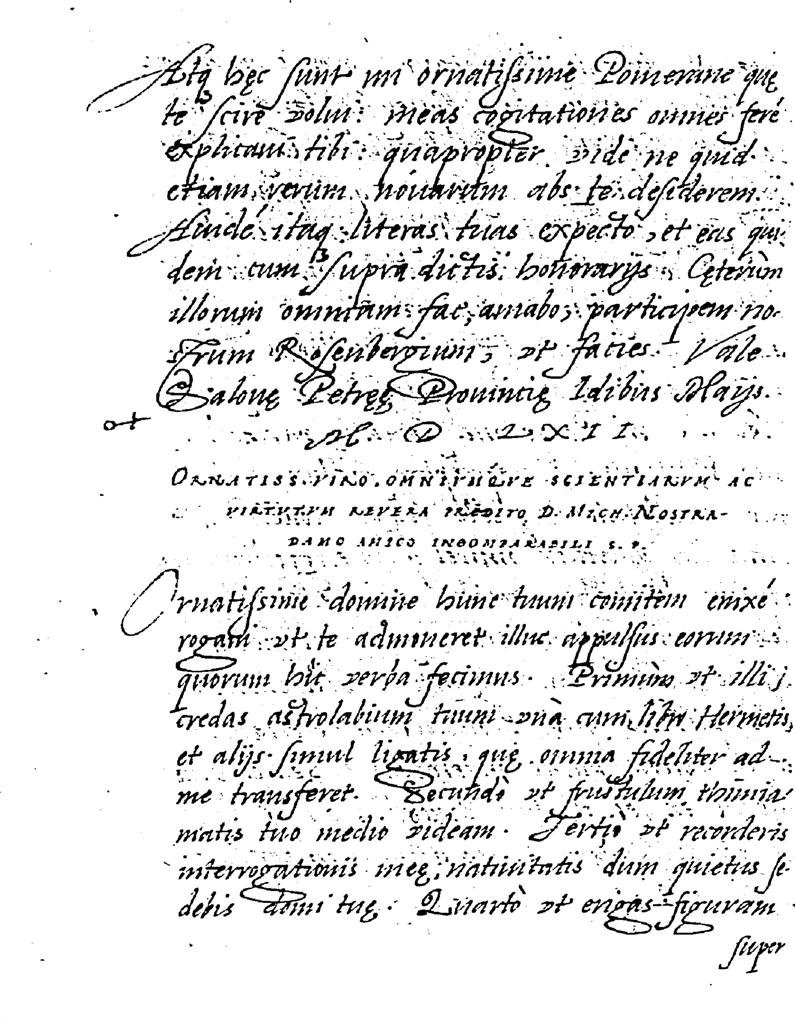 Atq hęc sunt mi ornatissime Pomerane quę
te scire volui: meas cogitationes omnes ferè
explicaui tibi: quapropter vide ne quid
etiam rerum nouarum abs te desiderem.
Auidè itaq literas tuas expecto, et eas qui-
dem cum supra dictis honorarijs. Cęterùm
illorum omnium fac, amabo, participem no-
strum Rosenbergium, vt facies. Vale
Salonę Petręę Prouincię Idibus Maijs.
M. D. LXII.
ORNATISS. VIRO. OMNIUMQVE SCIENTIARVM AC
VIRTVTVM REVERA PRĘDITO D. MICH. NOSTRA-
DAMO AMICO INCOMPARABILI S. P.
Ornatissime domine hunc tuum comitem enixè
rogaui vt te admoneret illuc appulsus eorum
quorum hìc verba fecimus. Primùm vt illi
credas astrolabium tuum vnà cum libro Hermetis,
et alijs simul ligatis, quę omnia fideliter ad
me transferet. Secundò vt frustulum thimia-
matis tuo medio videam. Tertiò vt recorderis
interrogationis meę, natiuitatis dum quietus se-
debis domi tuę. Quartò vt erigas figuram
super